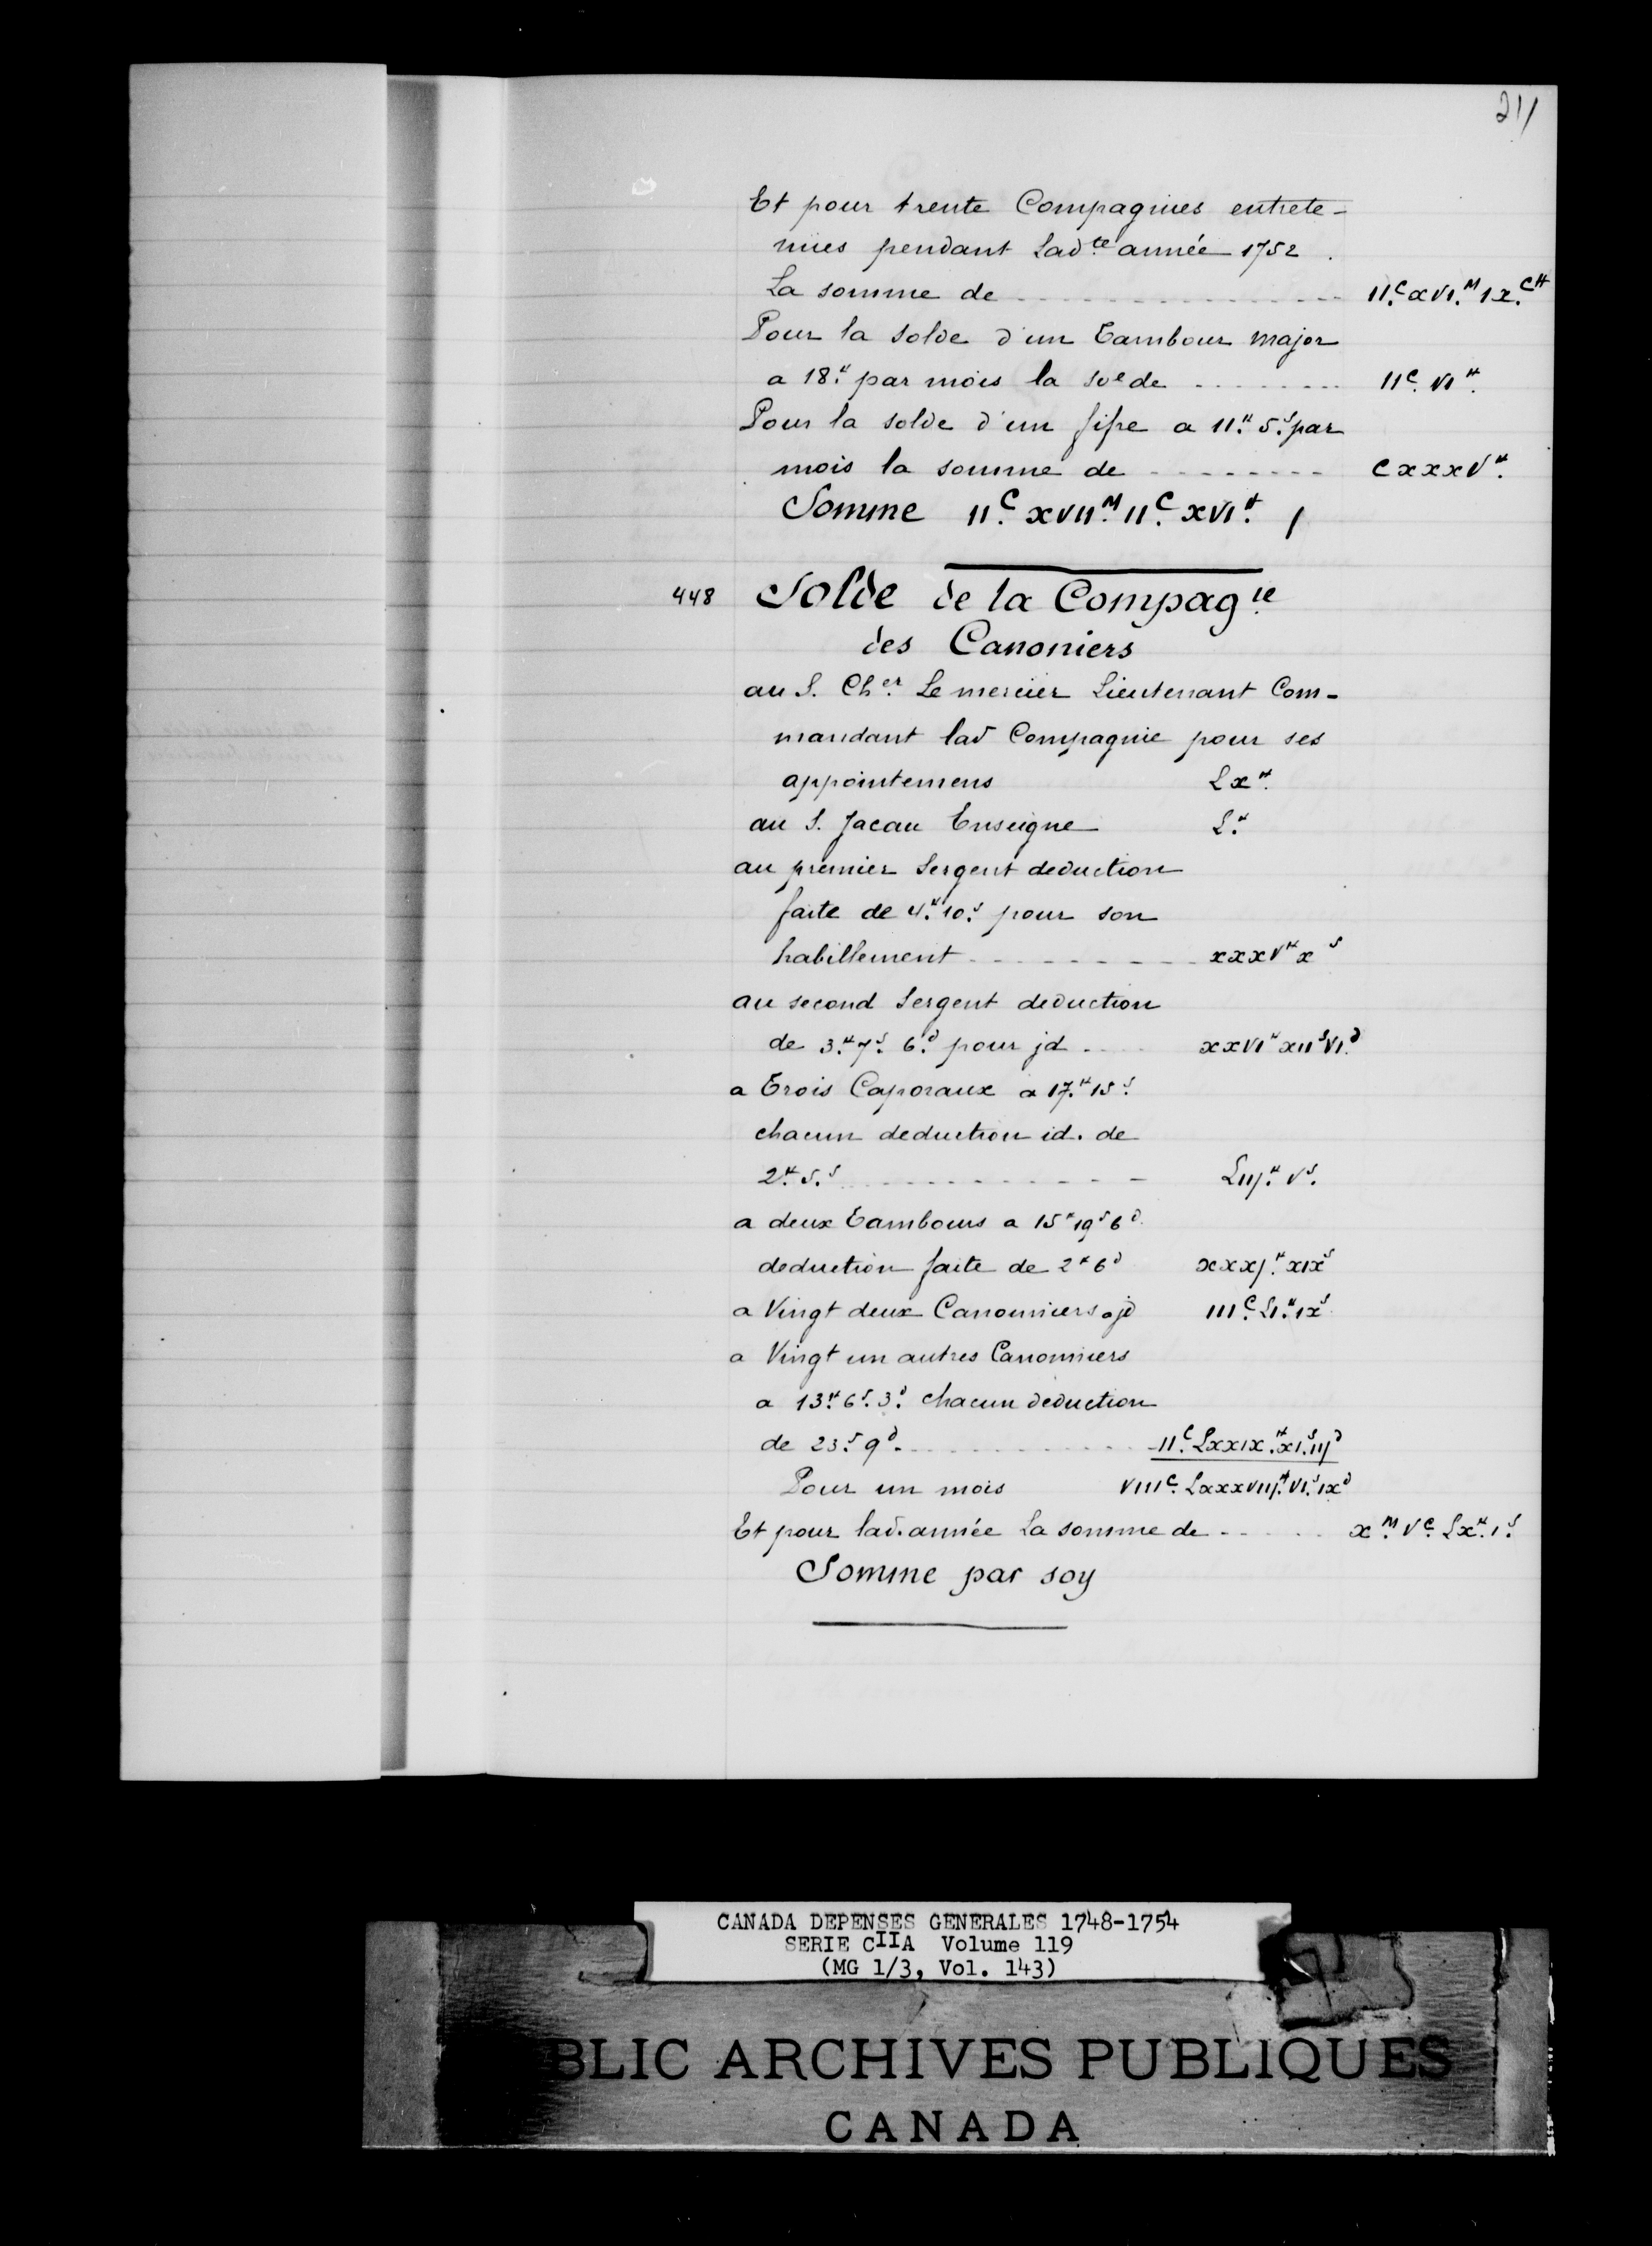 211
Et pour trente Compagnies entrete-
nues pendant Ladte année 1752.
La somme de II.C XVI.M IX.C ₶
Pour la solde d'un Tambour major
a 18.₶ par mois la soe de II C. VI ₶.
Pour la solde d'un fifre a 11.₶ 5.s par
mois la somme de C XXXV ₶.
Somme II.C XVII.M II.C XVI.₶
448 Solde de la Compagie
des Canoniers
au S. Cher Le mercier Lieutenant Com-
mandant lad Compagnie pour ses
appointemens LX ₶.
au S. Jacau Enseigne L.₶
au premier Sergent deduction
faite de 4.₶ 10.s pour son
habillement XXXV ₶ X s
au second Sergent deduction
de 3.₶ 7.s 6.d pour jd XXVI ₶ XII s VI.d
a Trois Caporaux a 17.₶ 15.s
chacun deduction id. de
2.₶ 5.s LIIJ.₶ V s.
a deux Tambours a 15 ₶ 19 s 6 d.
deduction faite de 2 ₶ 6 d XXXJ.₶ XIX s
a Vingt deux Canonniers a jd III C. LI.₶ IX s
a Vingt un autres Canonniers
a 13.₶ 6.s 3.d chacun deduction
de 23.s 9 d. II.C LXXIX.₶ XI.s IIJ d
Pour un mois VIII C. LXXXVIIJ.₶ VI.s IX d
Et pour lad. année La somme de X M. V C. LX ₶. I.s
Somme par soy
CANADA DEPENSES GENERALES 1748-1754
SERIE CIIA Volume 119
(MG 1/3, Vol. 143)
BLIC ARCHIVES PUBLIQUES
CANADA